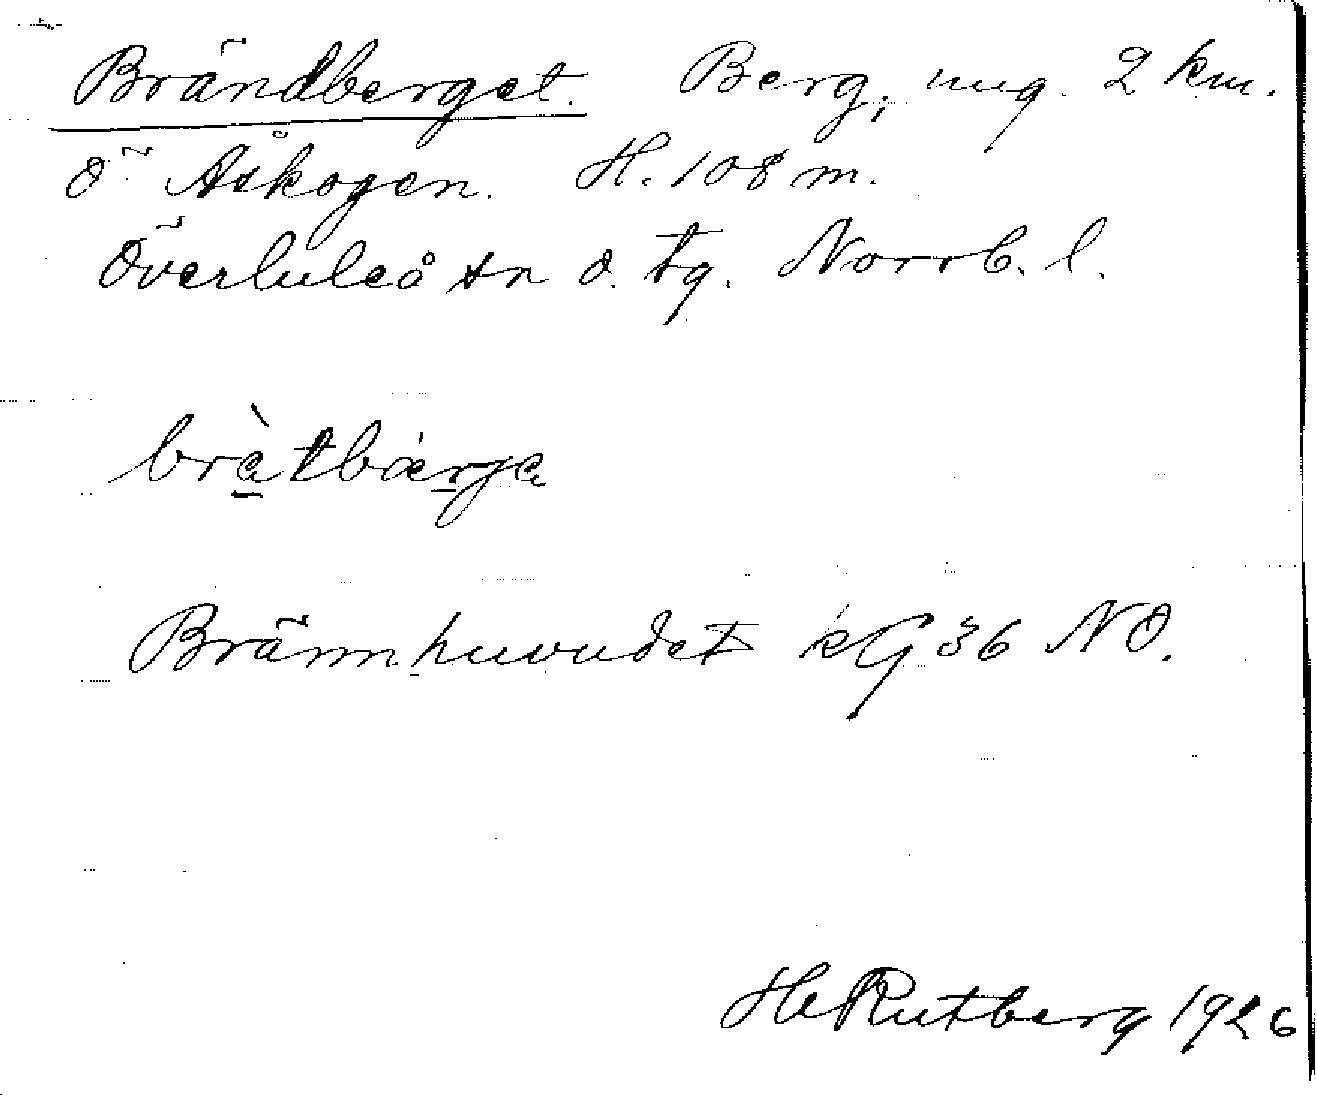 Brändberget. Berg, ung. 2 km.
Ö Åskogen. H. 108 m.
Överluleå sn o. tg. Norrb. l.
brà̱tbæṟja
Brännhuvudet kG 36 NO.
Rutberg 1926